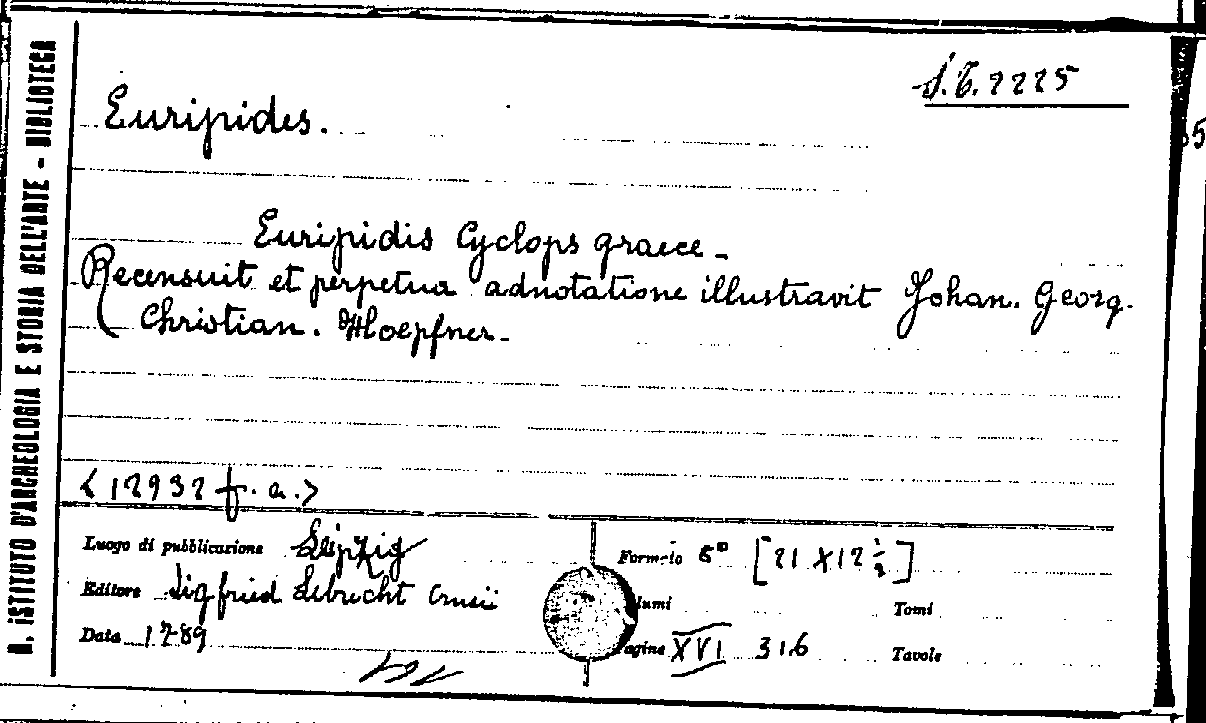 R. ISTITUTO D'ARCHEOLOGIA E STORIA DELL'ARTE - BIBLIOTECA
S.T. 2225
Euripides.
Euripidis Cyclops graece -
Recensuit et perpetua adnotatione illustravit Johan. Georg.
Christian. Hoepfner -
<12932 f. a.>
Luogo di pubblicazione Leipzig
Formato 8° [21 X 12 ½]
Editore Sigfried Lebrecht Crusii
lumi Tomi
Data 1789
agine XVI 316 Tavole